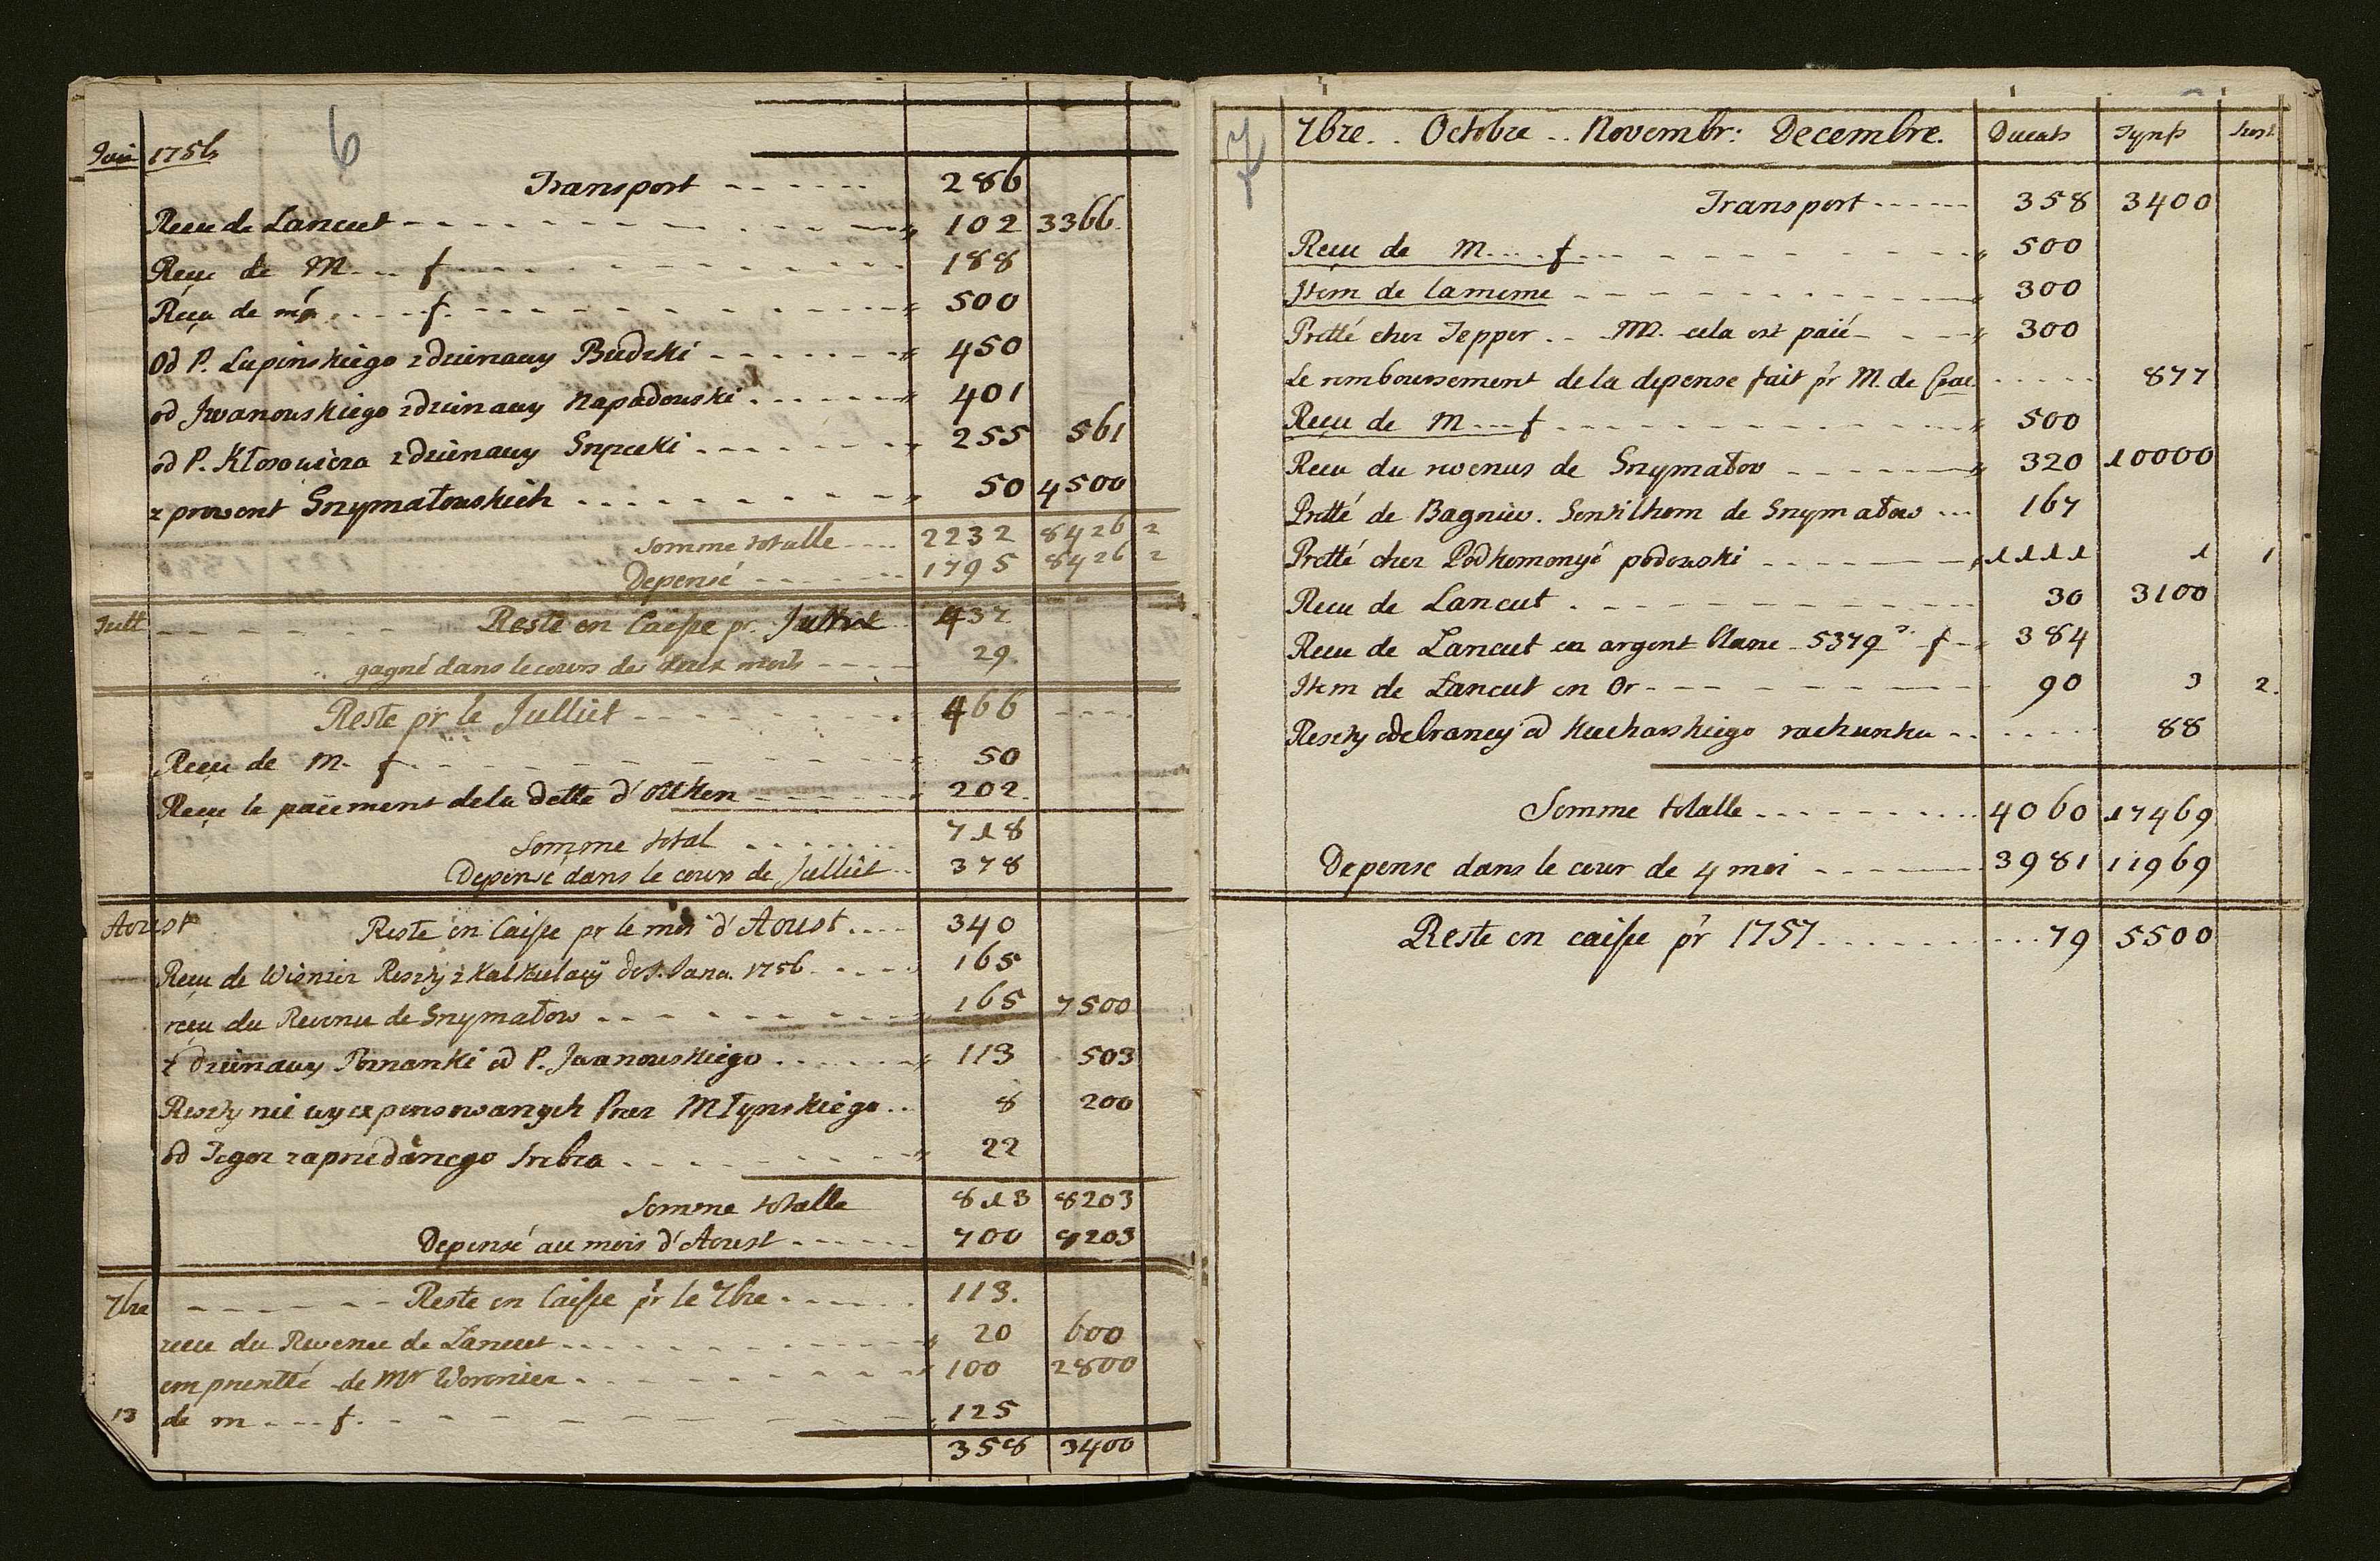 6
Juin 1756
Transport 286
Recu de Lancut 102 3366
Reçu de M... f 188
Reçu de m f 500
Od P. Lupinskiego z dzierzawy Budzki 450
od Jwanowskiego z dzierzawy Napadowski 401
od P. Kłosowicza z dzierzawy 255 561
z prowent Grzymałowskich 50 4500
Somme totalle 2232 8426 2
Depensé 1795 8426 2
Jull Reste en Caisse pr. Julliet 437
gagné dans le cours des deux mois 29
Reste pr le Julliet 466
Reçu de M. f 50
Reçu le paiement de la dette d'Ottken 202
Somme total 718
Depensé dans le cours de Julliet 378
Aoust Reste en Caisse pr le moi d'Aoust 340
Recu de Wienier Reszty z Kalkulacÿ do S. Jana 1756 165
reçu du Revenu de Grzymałow 165 7500
z dzierzawy Poznanki od P. Jwanowskiego 113 503
Reszty nie wyexpensowanych Przez Młynskiego 8 200
od Tegoz za przedanego Srebra 22
Somme totalle 813 8203
Depensé au mois d'Aoust 700 8203
7bre Reste en Caisse pr le 7bre 113.
recu du Revenue de Lancut 20 600
empruntté de Mr Woronier 100 2800
13 de m....f. 125
358 3400
7
7bre.. Octobre.. Novembr: Decembre. Ducats Tynfs
Transport 358 3400
Recu de M....f 500
Item de lameme 300
Pretté chez Tepper.. M. cela est paié 300
Le remboursement de la depense fait pr M. de 877
Reçu de M....f 500
Recu du revenus de Grzymałow 320 10000
Pretté de Bagniew. de Grzymałow 167
Pretté chez Podkomorzyé podowski 1111 1 1
Recu de Lancut 30 3100
Recu de Lancut en argent blanc 5379 f 384
Item de Lancut en Or 90 3 2.
Reszty odebraney od Kucharskiego rachunku 88
Somme totalle 4060 17469
Depense dans le cour de 4 moi 3981 11969
Reste en caisse pr 1757 79 5500